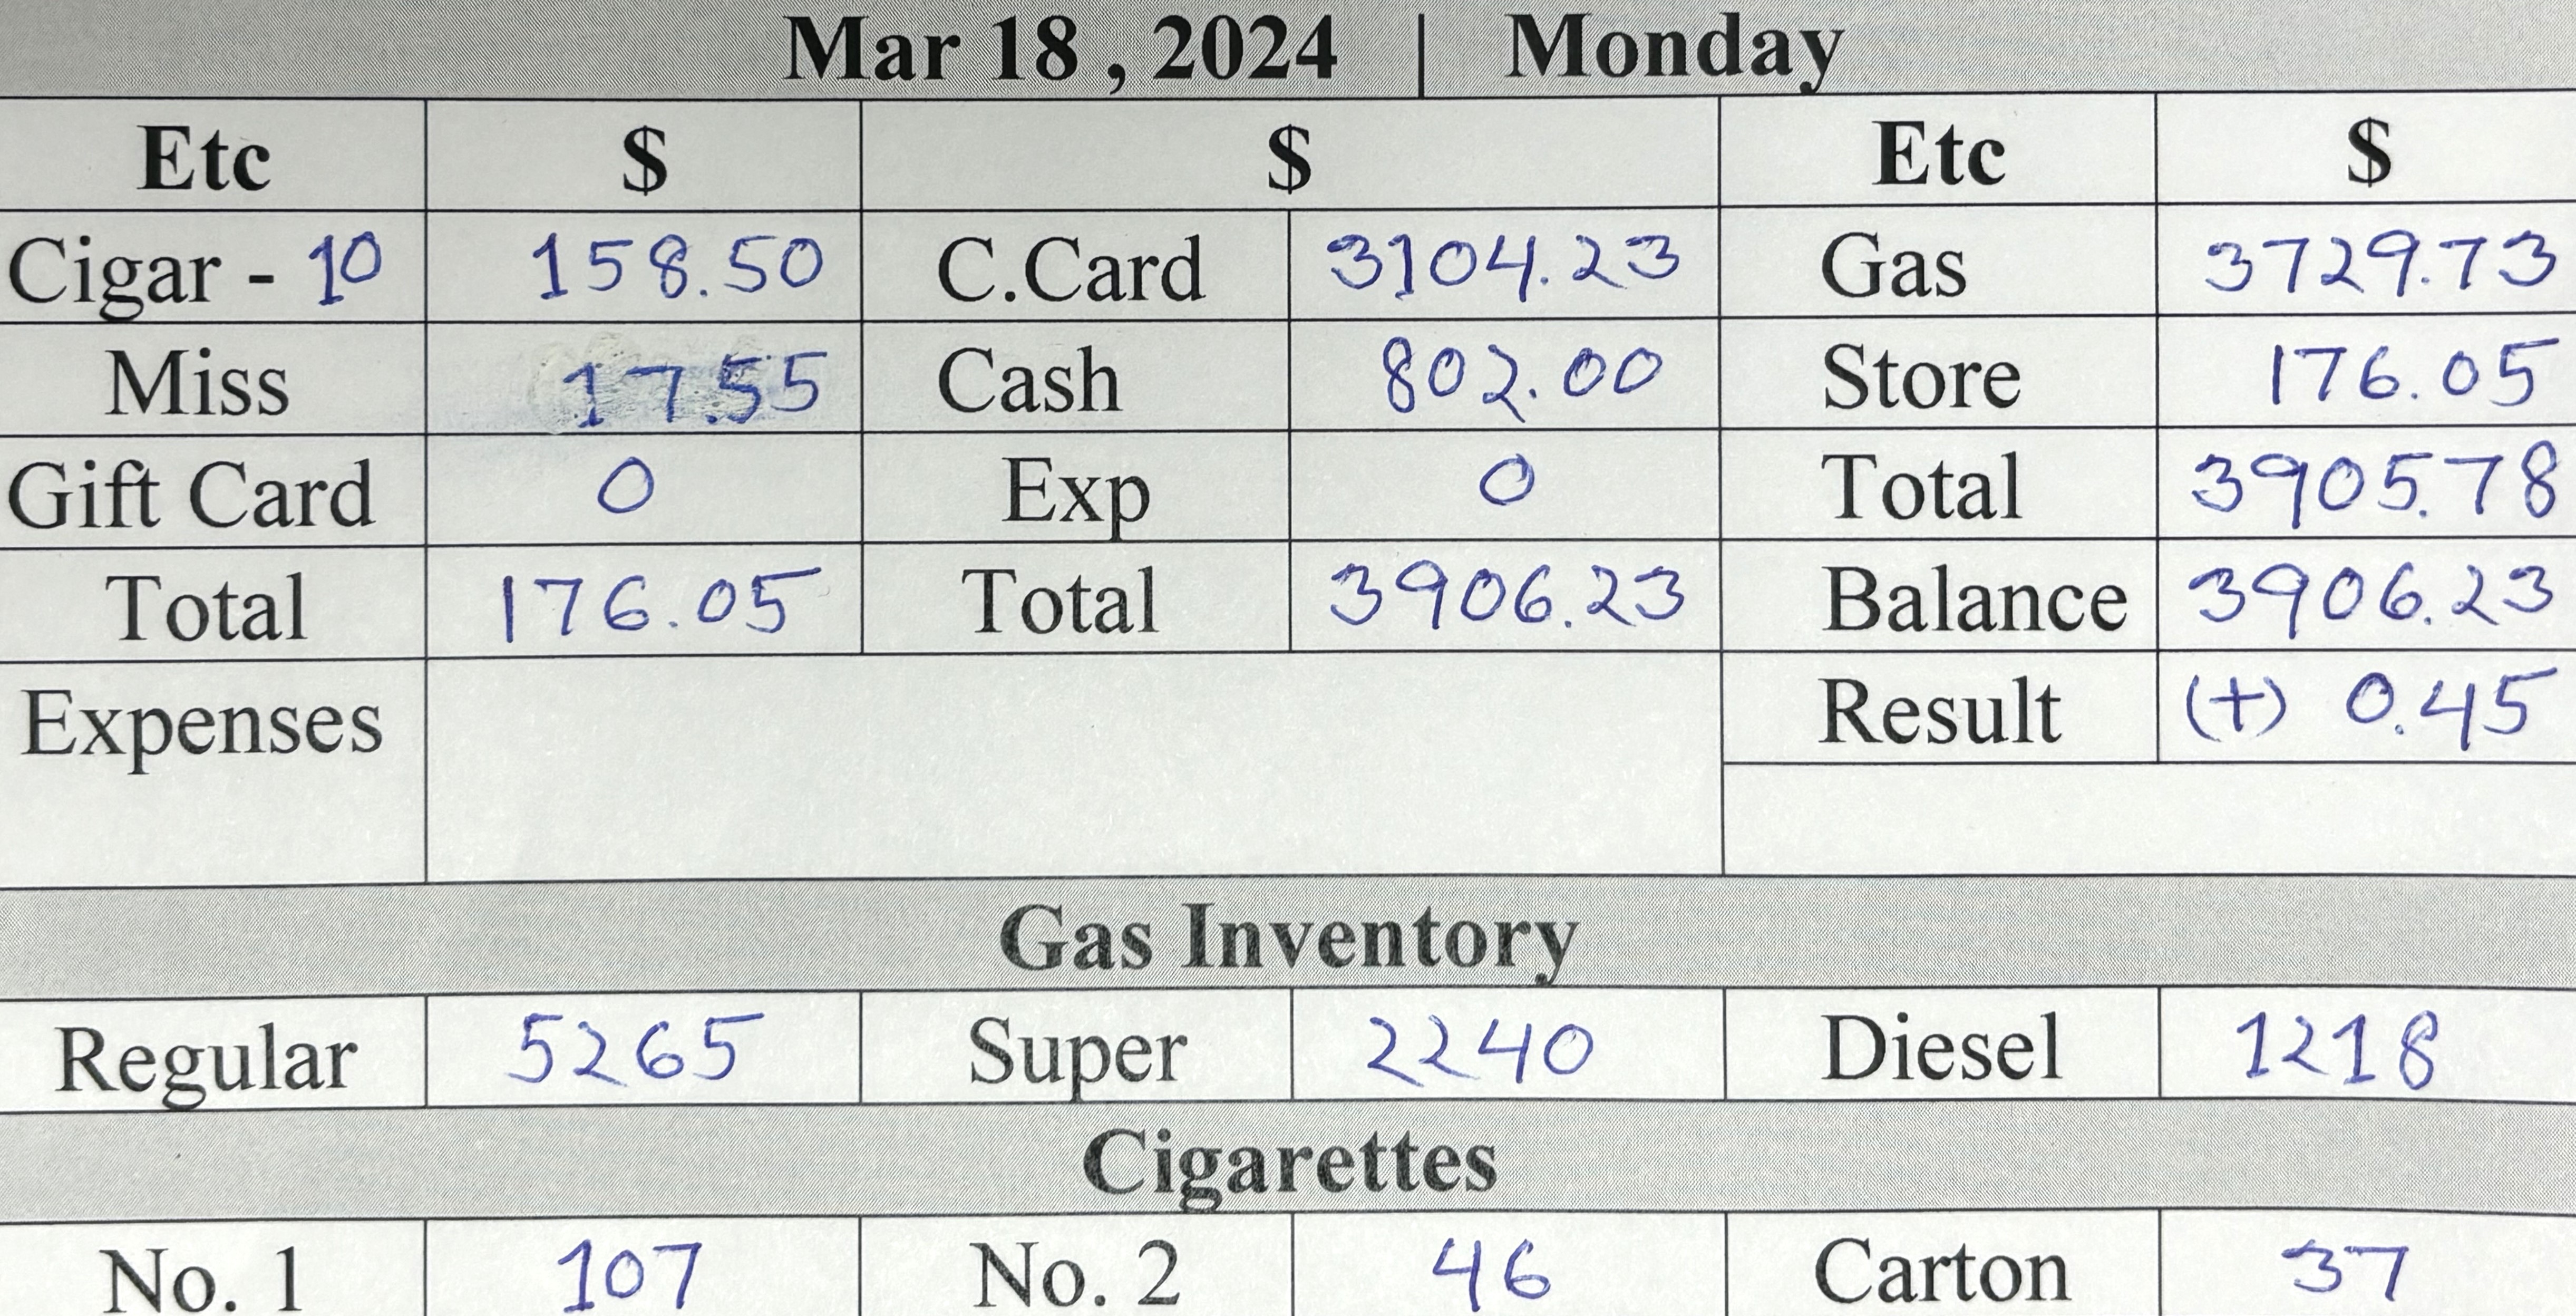 Mar 18 , 2024 | Monday
Etc $ $ Etc $
Cigar - 10 158.50 C.Card 3104.23 Gas 3729.73
Miss 17.55 Cash 802.00 Store 176.05
Gift Card 0 Exp 0 Total 3905.78
Total 176.05 Total 3906.23 Balance 3906.23
Expenses Result (+) 0.45
Gas Inventory
Regular 5265 Super 2240 Diesel 1218
Cigarettes
No. 1 107 No. 2 46 Carton 37